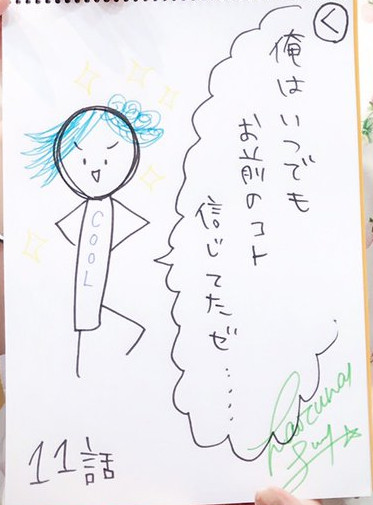 く
俺はいつでも
お前のコト
信じてたぜ……
COOL
11話